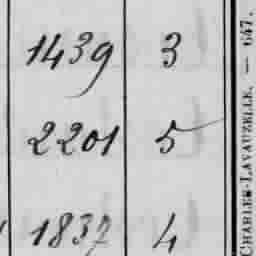 1439 3
2201 5
1837 4
CHARLES-LAVAUZELLE. — 647.